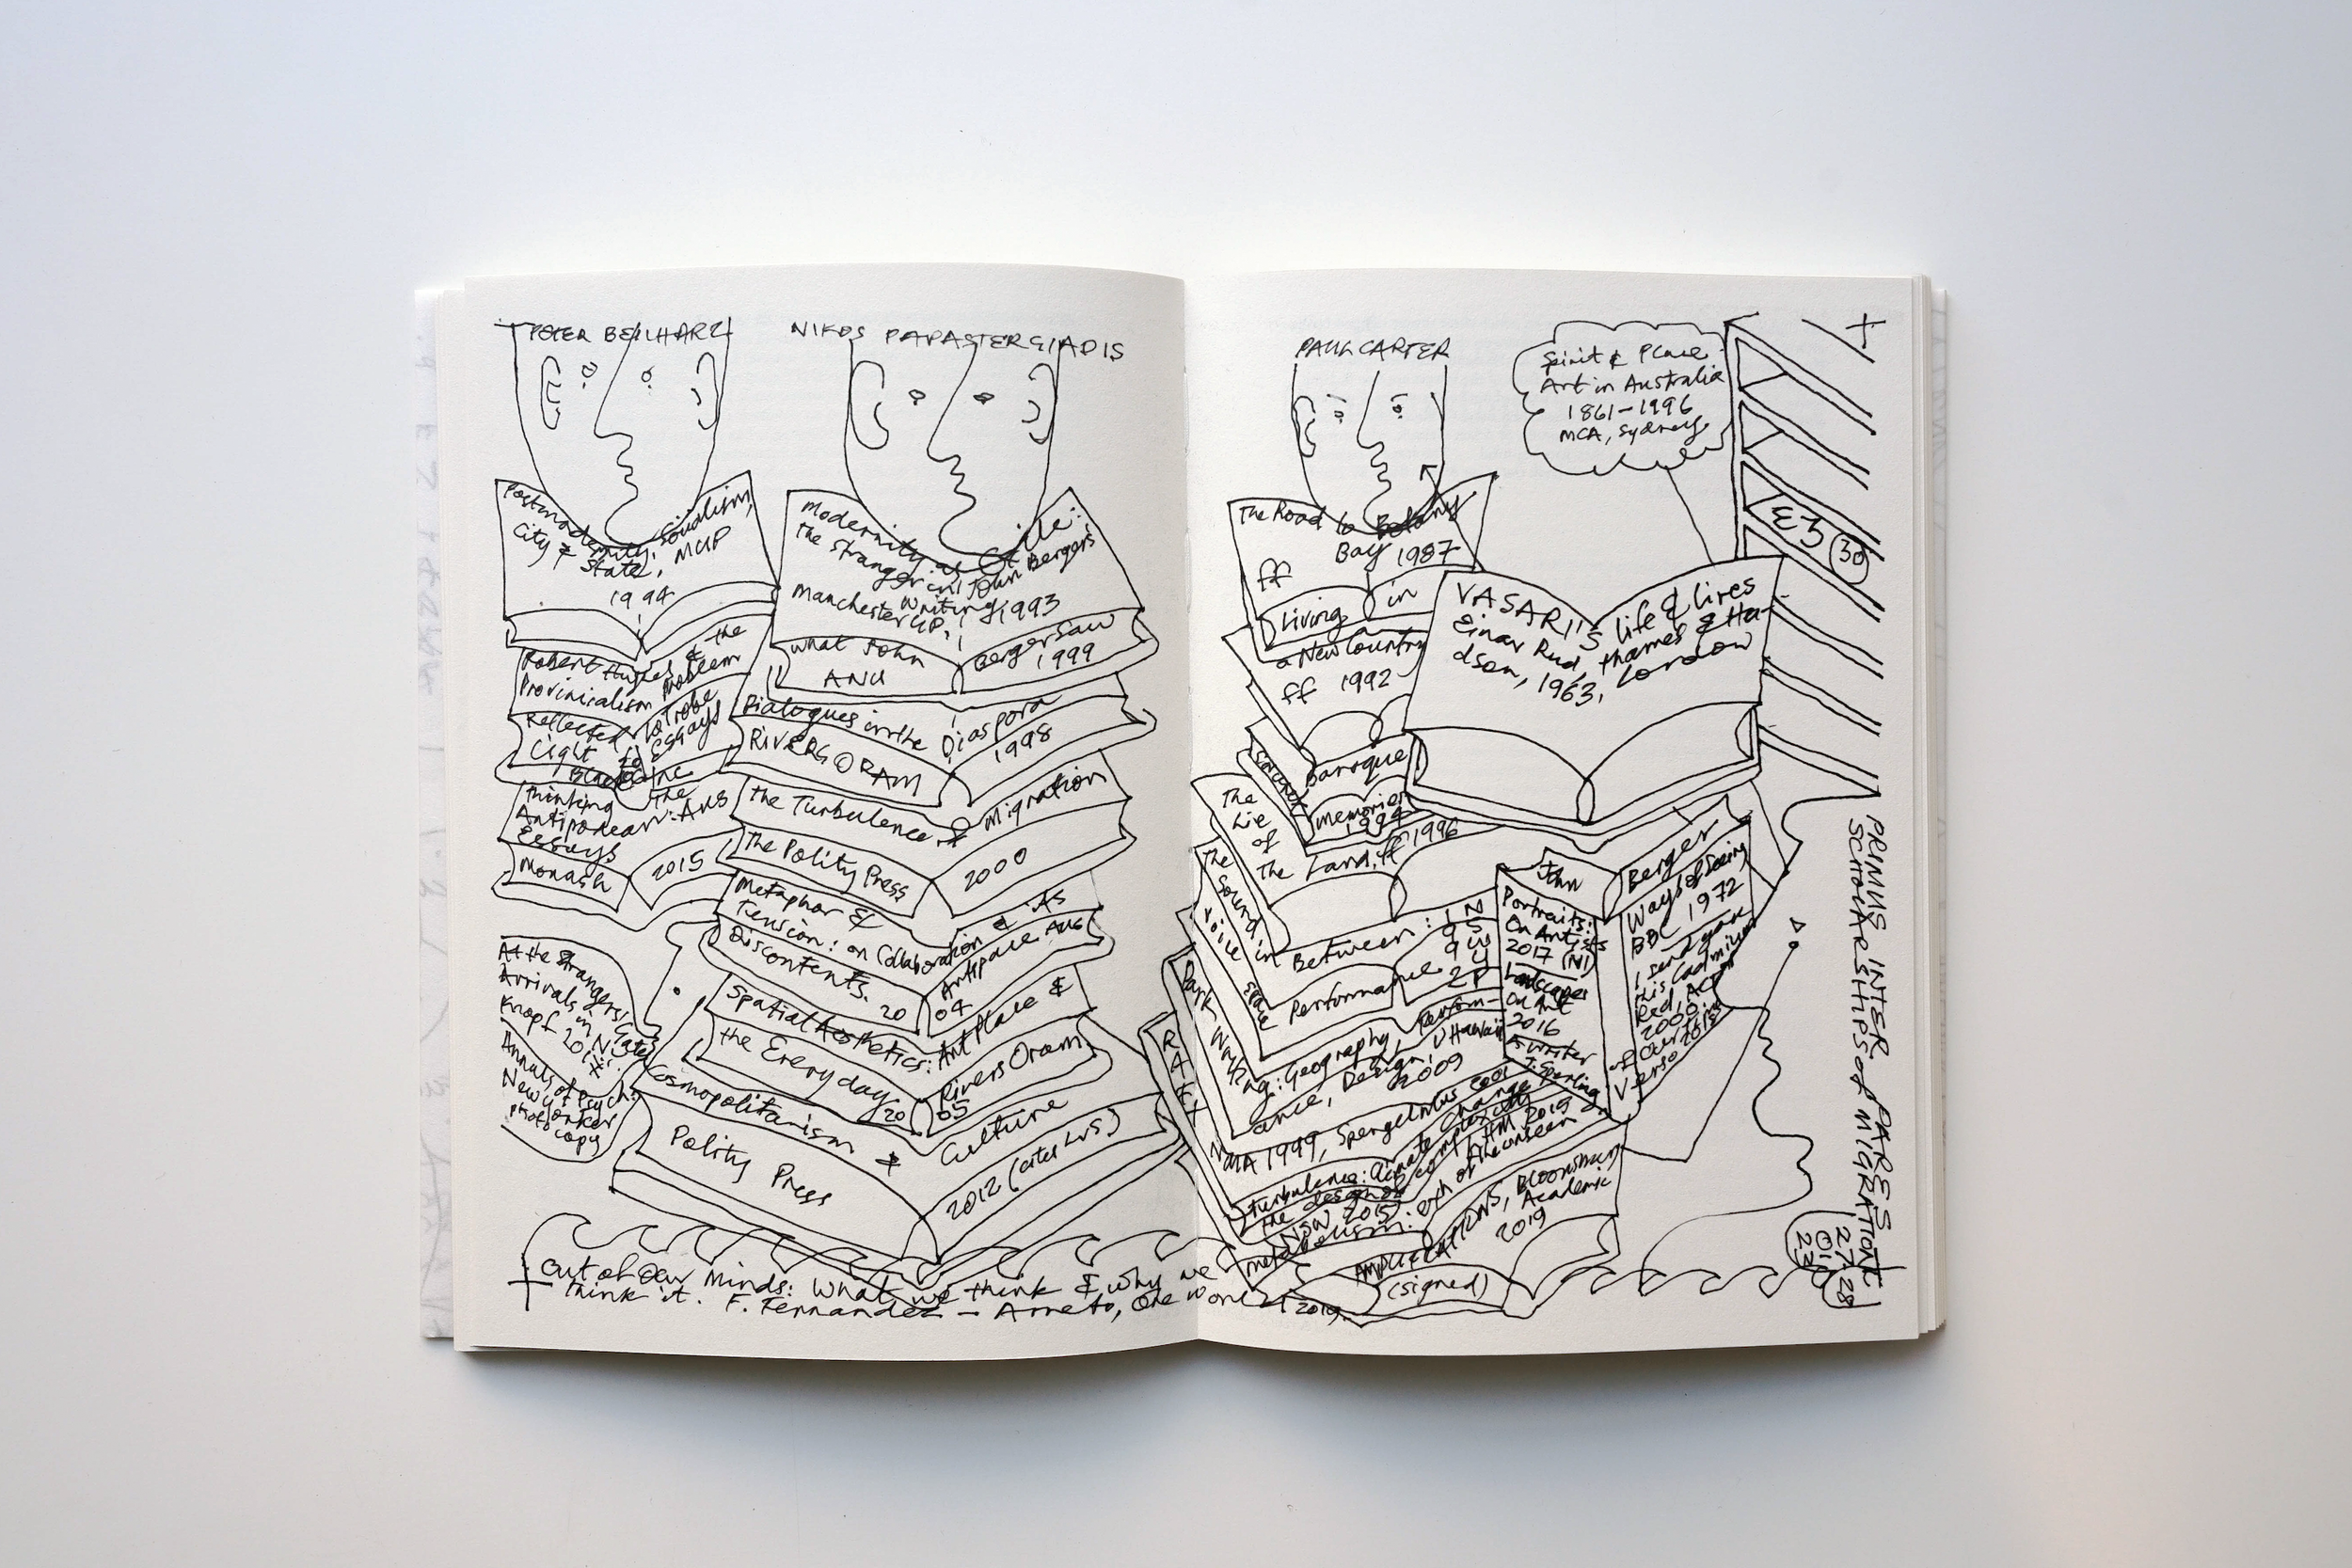 PETER BEILHARZ
Postmodernity, Socialism,
City & State, MUP
1994
Robert Hughes & the
Provincialism Problem
Reflected
Light
La Trobe
Essays
Black Inc
Thinking
The
Antipodean: Aus
Essays
Monash
2015
At the Strangers' Gate:
Arrivals in N.Y.
Knopf
Annals of Psych:
New Yorker
photocopy
NIKOS PAPASTERGIADIS
Modernity as Exile:
The Stranger in John Bergers
writing
Manchester UP, 1993
What John
Berger Saw
ANU
1999
Dialogues in the Diaspora
RIVERS ORAM
1998
The Turbulence of Migration
The Polity Press
2000
Metaphor &
Tension: on Collaboration & its
Discontents. 20
Artspace Aus
04
Spatial Aesthetics: Art Place &
the Everyday 20
Rivers Oram
05
Cosmopolitanism & Culture
Polity Press
2012
Out of Our Minds: What we think & why we
think it. F. Fernandez – Armesto, One World 2019.
PAUL CARTER
The Road to Botany
Bay 1987
ff
Living in
a New Country
ff 1992
Baroque
Memories
1994
The
Lie
of
The Land, ff 1996
The
Sound in
Between:
Voice
Space
Performance
Dark Writing: Geography, Perform-
ance, Design, U Hawaii
2009
NMA 1999,
Turbulence: Climate Change
the design of complexity
2015
Metabolism: of the unseen
AMPLIFICATIONS, Bloomsbury
Academic
2019
(signed)
Spirit & Place
Art in Australia
1861–1996
MCA, Sydney
E3
30
VASARI'S life & lives
Einar Rud, Thames & Hu-
dson, 1963, London
John
Berger
Portraits:
On Artists
2017
Landscapes
On Art
2016
A writer
J. Sperling
Ways of Seeing
BBC 1972
I send you
this Cadmium
Red, ACT
2000
Verso
PRIMUS INTER PARES
SCHOLARSHIPS of MIGRATION